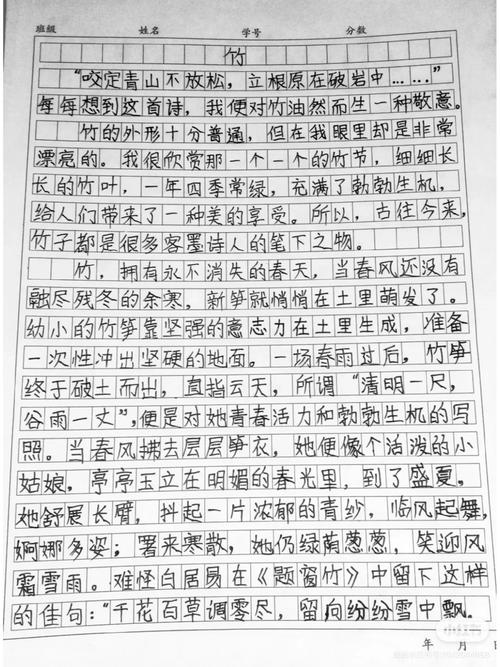 班级 姓名 学号 分数
竹
“咬定青山不放松，立根原在破岩中……”
每每想到这首诗，我便对竹油然而生一种敬意。
竹的外形十分普通，但在我眼里却是非常
漂亮的。我很欣赏那一个一个的竹节，细细长
长的竹叶，一年四季常绿，充满了勃勃生机，
给人们带来了一种美的享受。所以，古往今来，
竹子都是很多客墨诗人的笔下之物。
竹，拥有永不消失的春天，当春风还没有
融尽残冬的余寒，新笋就悄悄在土里萌发了。
幼小的竹笋靠坚强的意志力在土里生成，准备
一次性冲出坚硬的地面。一场春雨过后，竹笋
终于破土而出，直指云天，所谓“清明一尺，
谷雨一丈”，便是对她青春活力和勃勃生机的写
照。当春风拂去层层笋衣，她便像个活泼的小
姑娘，亭亭玉立在明媚的春光里，到了盛夏。
她舒展长臂，抖起一片浓郁的青纱，临风起舞，
婀娜多姿；署来寒散，她仍绿荫葱葱，笑迎风
霜雪雨。难怪白居易在《题窗竹》中留下这样
的佳句：“千花百草调零尽，留向纷纷雪中飘。
小红书
年 月